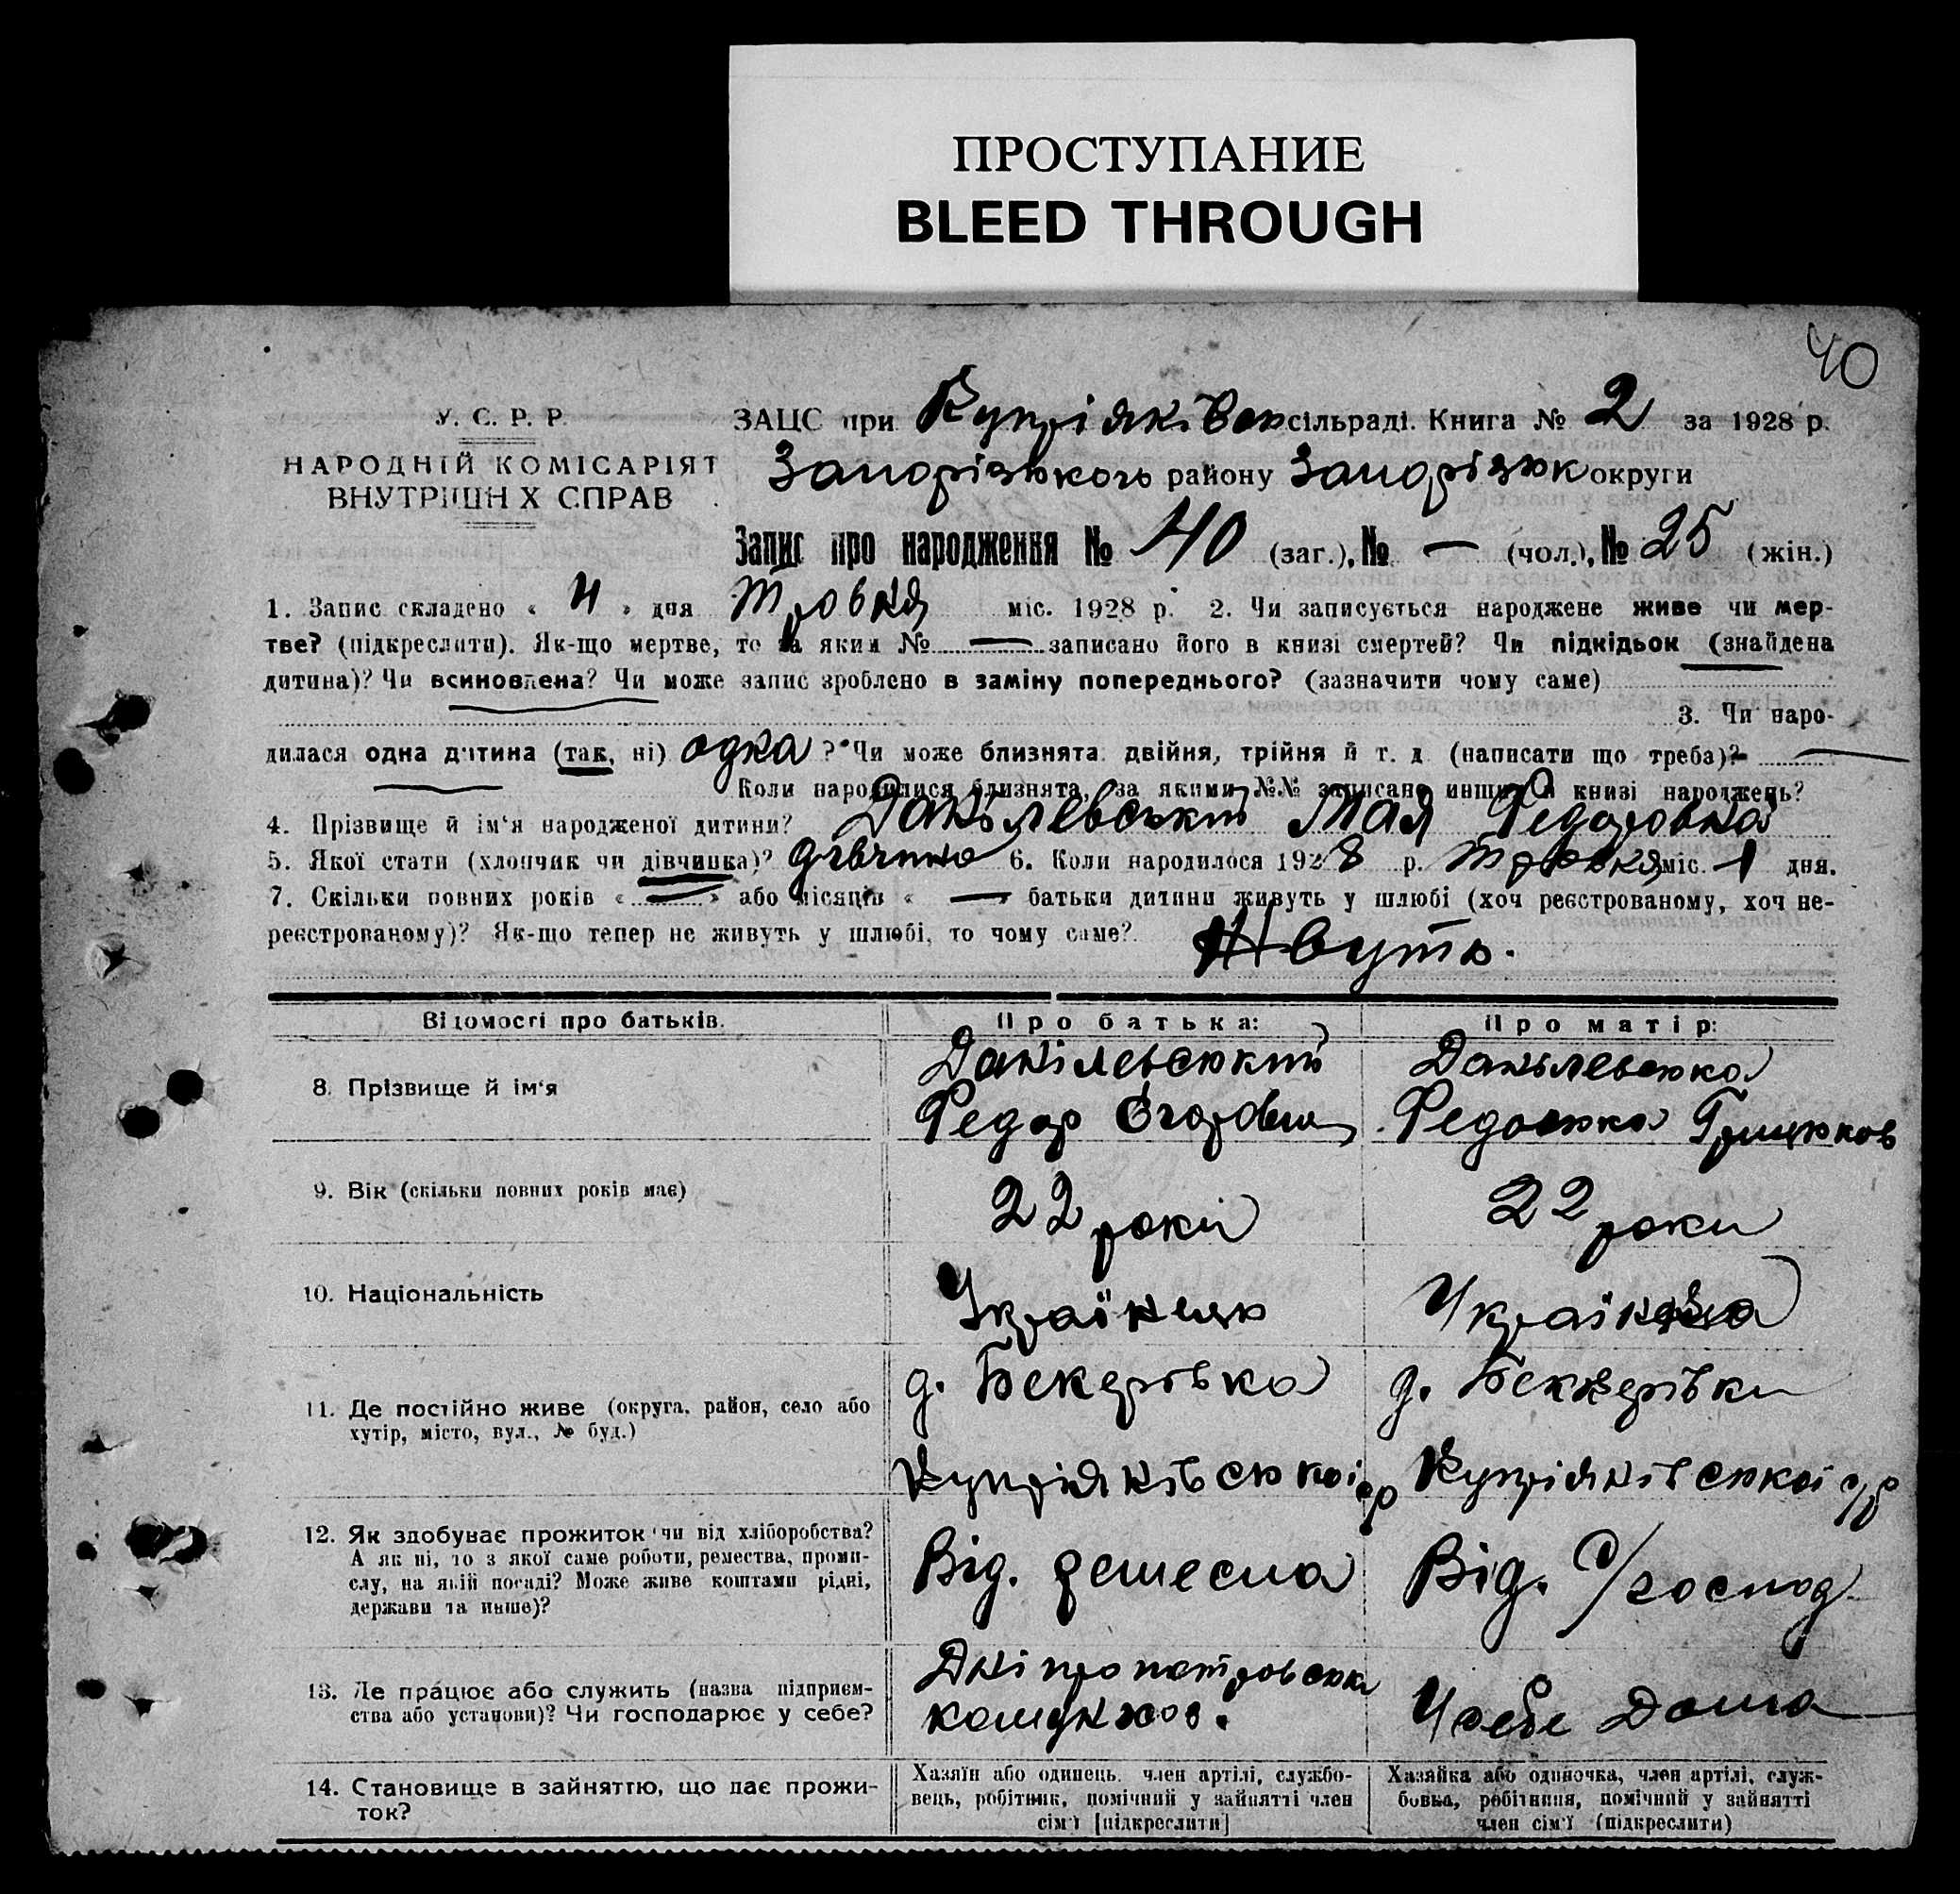 ПРОСТУПАНИЕ
BLEED THROUGH
40
У. С. Р. Р.
НАРОДНІЙ КОМІСАРІЯТ
ВНУТРІШН Х СПРАВ
ЗАЦС при Купріяківськ сільраді. Книга № 2 за 1928 р.
Запорізького району Запорізьк округи
Запис про народження № 40 (заг.), № — (чол.), № 25 (жін.)
1. Запис складено « 4 » дня Тровня міс. 1928 р. 2. Чи записується народжене живе чи мер-
тве? (підкреслити). Як-що мертве, то за яким № — записано його в книзі смертей? Чи підкідьок (знайдена
дитина)? Чи всиновлена? Чи може запис зроблено в заміну попереднього? (зазначити чому саме)
3. Чи наро-
дилася одна дитина (так, ні) одна ? Чи може близнята двійня, трійня й т. д. (написати що треба)? —
Коли народилися близнята, за якими №№ записано инших в книзі народжень?
4. Прізвище й ім‘я народженої дитини? Данілевський Мая Федоровна
5. Якої стати (хлопчик чи дівчинка)? дівчина 6. Коли народилося 1928 р. тровня міс. 1 дня.
7. Скільки повних років « — » або місяців « — батьки дитини живуть у шлюбі (хоч реєстрованому, хоч не-
реєстрованому)? Як-що тепер не живуть у шлюбі, то чому саме? Живуть.
Відомості про батьків.
Про батька:
Про матір:
8. Прізвище й ім‘я
Данілевський
Федор
Данылевська
Федоська
9. Вік (скільки повних років має)
22 рокі
22 роки
10. Національність
Українць
Українка
11. Де постійно живе (округа, район, село або
хутір, місто, вул., № буд.)
д. Бекерівка
Купріяківської ср
д. Бекерівки
Купріяківської с/р
12. Як здобуває прожиток чи від хліборобства?
А як ні, то з якої саме роботи, ремества, проми-
слу, на якій посаді? Може живе коштами рідні,
держави та инше)?
Від. ремесла
Від. С/господ
13. Де працює або служить (назва підприєм-
ства або установи)? Чи господарює у себе?
Дніпропетровськ
комунхоз.
У себе Дома
14. Становище в зайняттю, що дає прожи-
ток?
Хазяїн або одинець, член артілі, службо-
вець, робітник, помічний у зайнятті член
сім‘ї [підкреслити]
Хазяйка або одиночка, член артілі, служ-
бовка, робітниця, помічний у зайнятті
член сім‘ї (підкреслити)